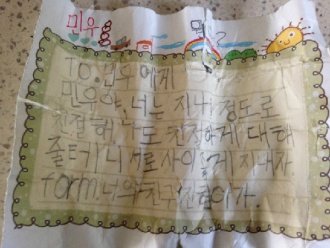 민우
To. 민우에게
민우야 너는 지나 정도로
친절해 나도 친절하게 대해
줄테니 서로 사이 게 지내자.
form. 너의 친구